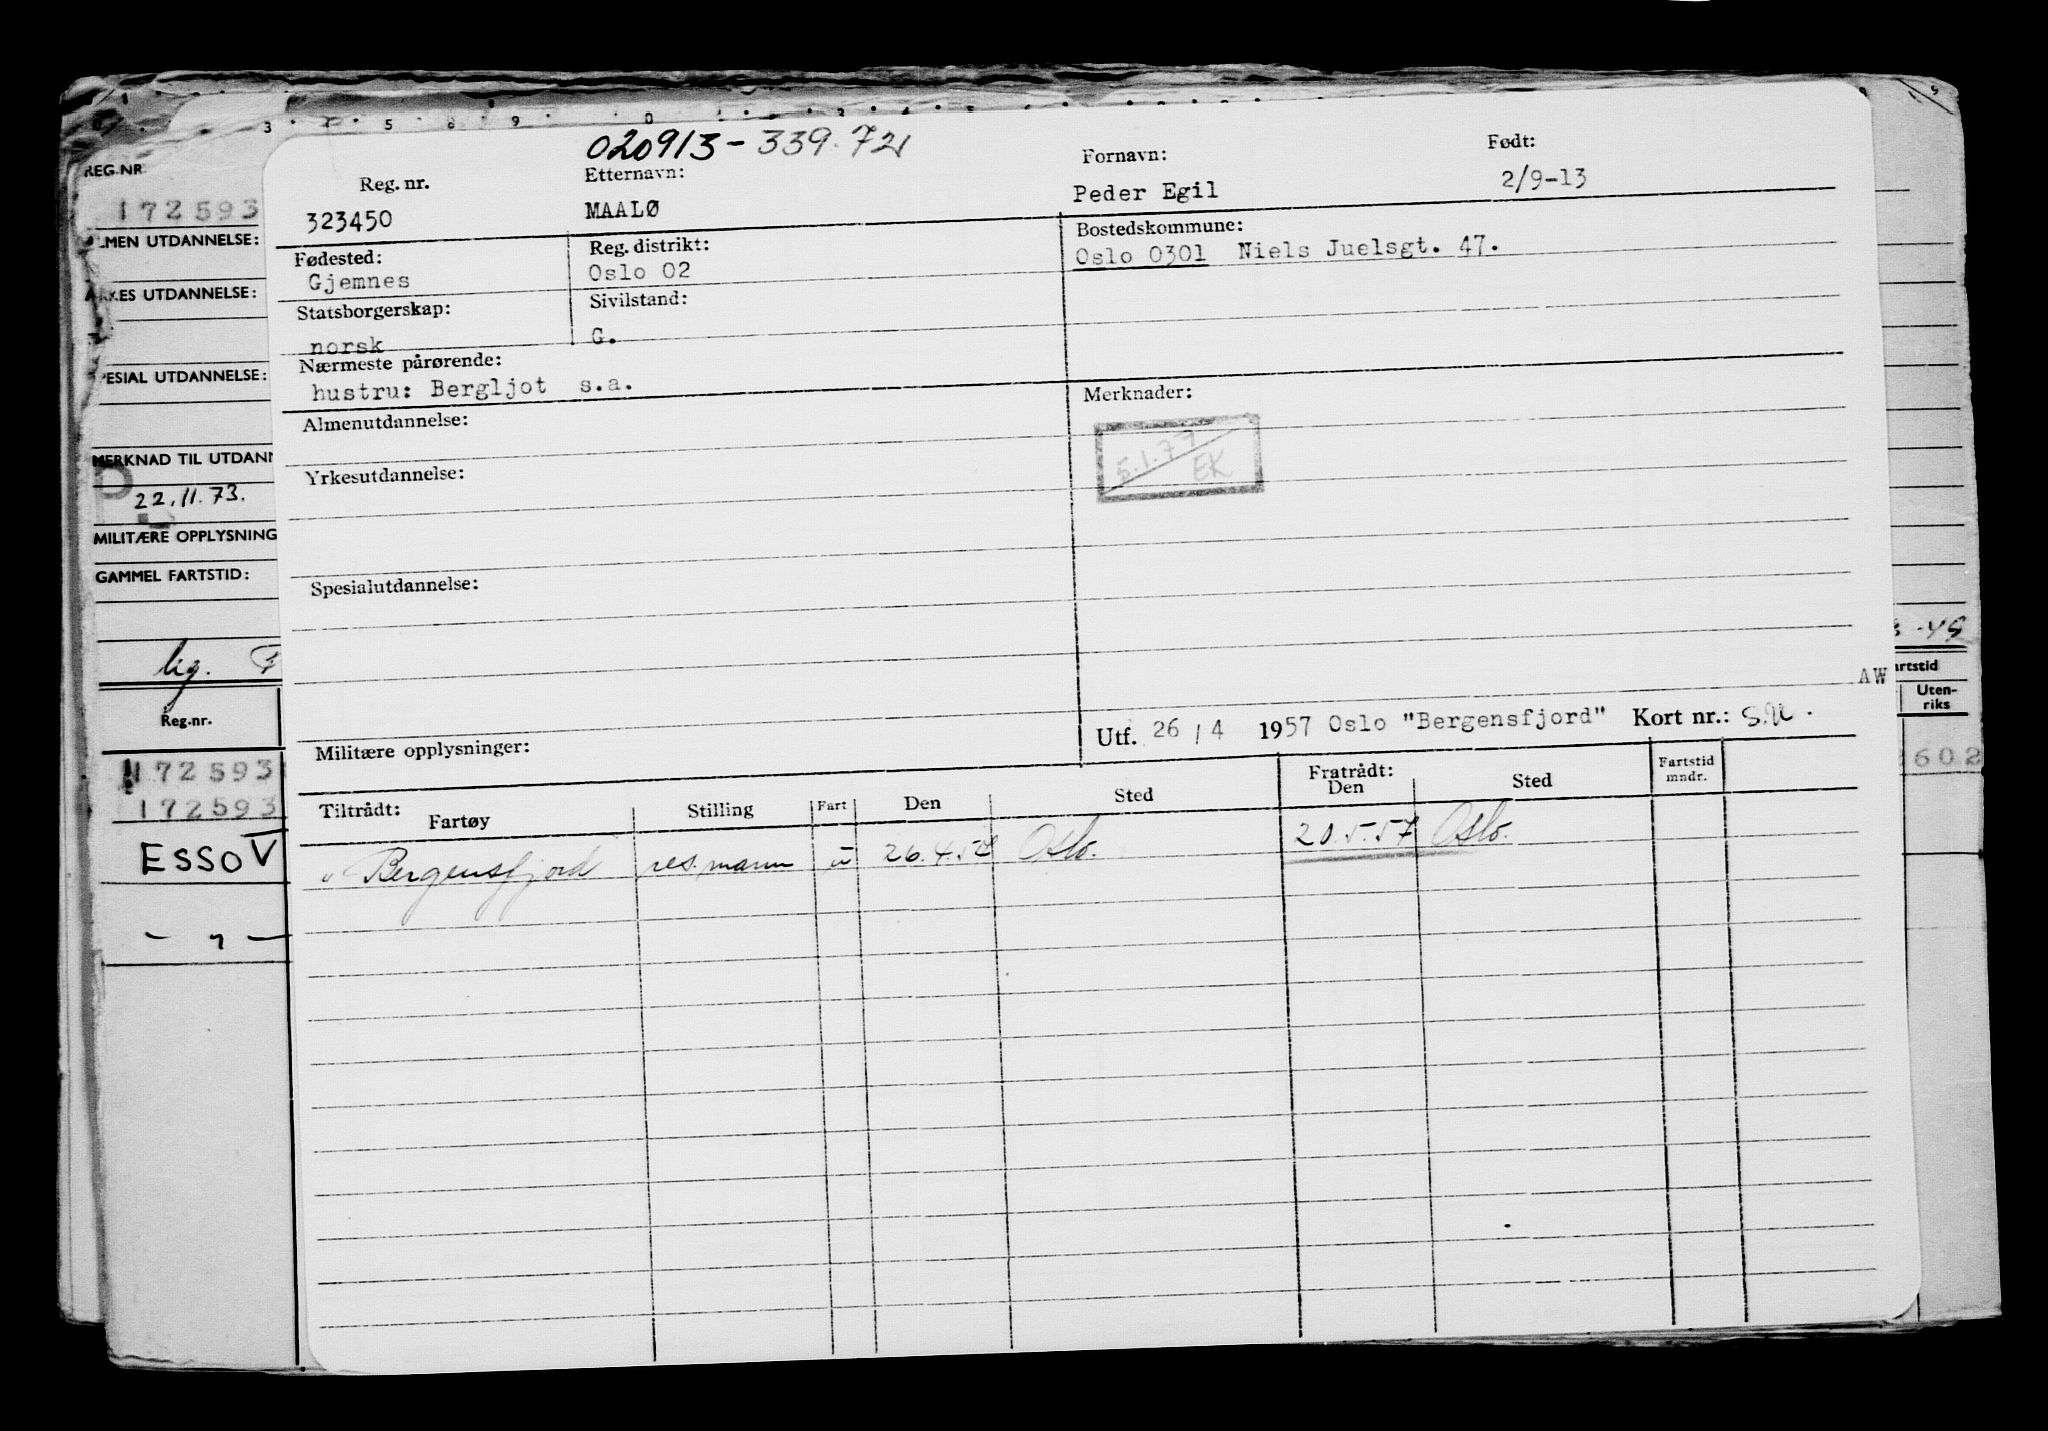 020913-339.72
Reg. nr. Etternavn: Fornavn: Født:
323450 MAALØ Peder Egil 2/9-13
Fødested: Reg. distrikt: Bostedskommune:
Gjemnes Oslo 02 Oslo 0301 Niels Juelsgt. 47.
Statsborgerskap: Sivilstand:
norsk G.
Nærmeste pårørende:
hustru: Bergljot s.a.
Almenutdannelse: Merknader:
5.1.77
EK
Yrkesutdannelse:
Spesialutdannelse:
AW
Militære opplysninger: Utf. 26/4 1957 Oslo "Bergensfjord" Kort nr.:
Tiltrådt: Fratrådt:
Fartøy Stilling Fart Den Sted Den Sted Fartstid mndr.
Bergensfjord res.mann u 26.4.57 Oslo. 20.5.57 Oslo.
REG.NR
172593
ALMEN UTDANNELSE:
YRKES UTDANNELSE:
SPESIAL UTDANNELSE:
MERKNAD TIL UTDANN
22.11.73.
MILITÆRE OPPLYSNING
GAMMEL FARTSTID:
leg.
Reg.nr.
172593
172593
ESSO V
- " -
-48
artstid
Uten-
riks
602